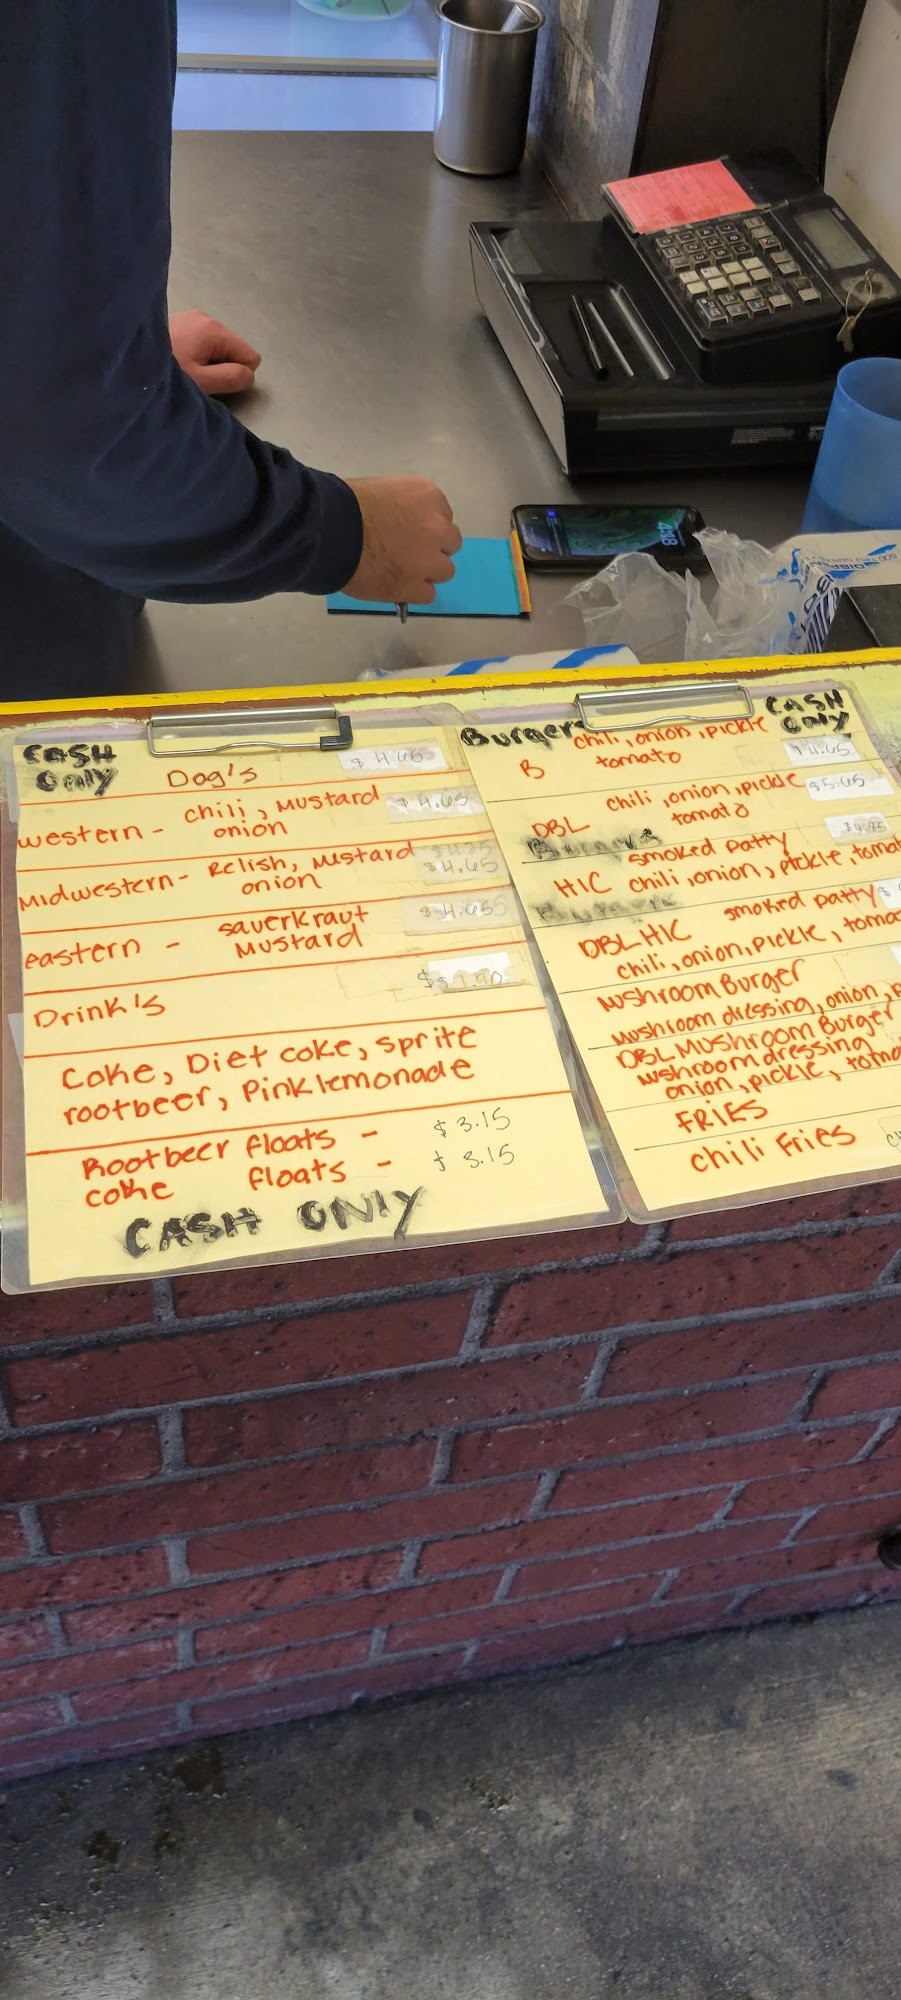 CASH
Only
Dog's
$4.65
western - chili, mustard
onion
$4.65
Midwestern - Relish, mustard
onion
$4.65
eastern - sauerkraut
mustard
$4.65
Drink's
Coke, Diet coke, sprite
rootbeer, Pink lemonade
Rootbeer floats - $3.15
coke floats - $3.15
CASH ONLY
Burgers
CASH
Only
chili, onion, pickle
B tomato
$4.65
chili, onion, pickle
DBL tomato
$5.65
smoked patty
HIC chili, onion, pickle, tomat
$4.85
DBL HIC smoked patty
chili, onion, pickle, toma
Mushroom Burger
mushroom dressing, onion, p
DBL Mushroom Burger
mushroom dressing
onion, pickle, toma
FRIES
chili Fries
4:18